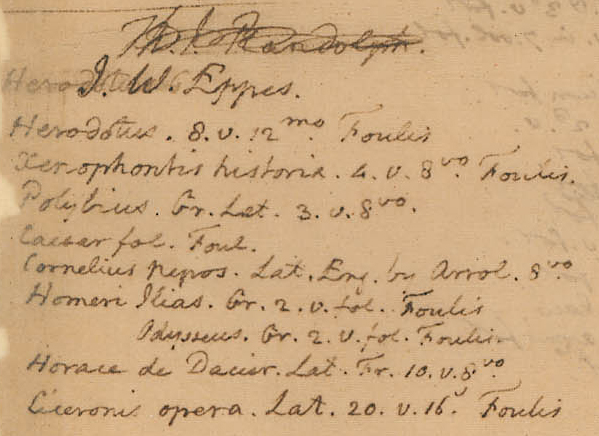 Th. J. Randolph.
J. W. Eppes.
Herodotus. 8. v. 12mo. Foulis
Xenophontis historia. 4. v. 8vo. Foulis.
Polybius. Gr. Lat. 3. v. 8vo.
Caesar fol. Foul.
Cornelius nepos. Lat. Eng. by Arrol. 8vo
Homeri Ilias. Gr. 2. v. fol. Foulis
Odysseus. Gr. 2. v. fol. Foulis.
Horace de Dacier. Lat. Fr. 10. v. 8vo.
Ciceronis opera. Lat. 20. v. 16o Foulis